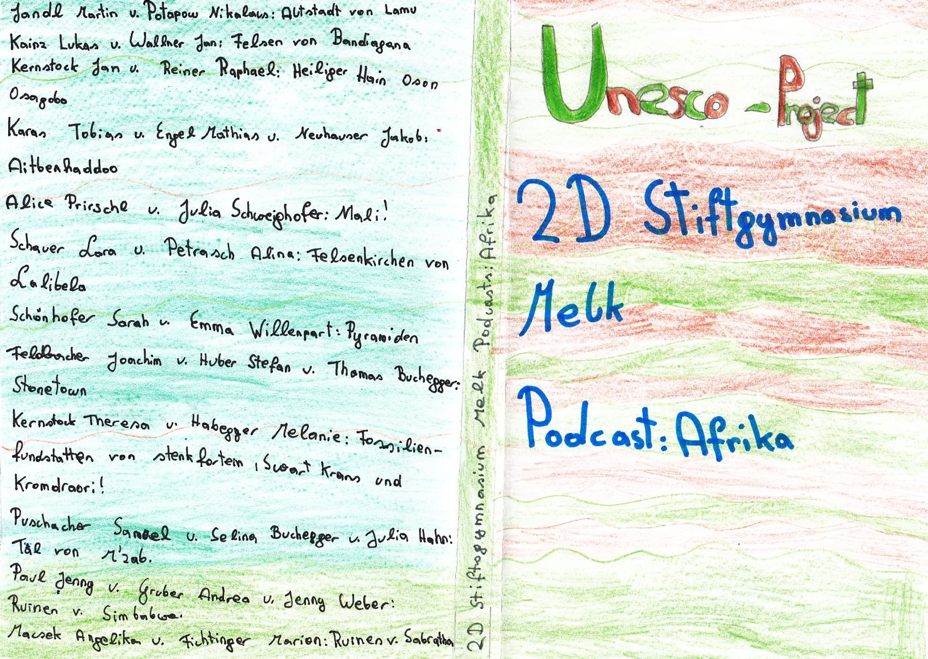 Jandl Martin u. Potapow Nikolaus: Altstadt von Lamu
Kainz Lukas u. Wallner Jan: Felsen von Bandiagana
Kernstock Jan u. Reiner Raphael: Heiliger Hain Oson
Osogobo
Karas Tobias u. Engel Mathias u. Neuhauser Jakob:
Aitbenhaddoo
Alice Prirschl u. Julia Schweighofer: Mali!
Schauer Lara u. Petrasch Alina: Felsenkirchen von
Lalibela
Schönhofer Sarah u. Emma Willenpart: Pyramiden
Feldbacher Joachim v. Huber Stefan u. Thomas Buchegger:
Stonetown
Kernstock Theresa u. Habegger Melanie: Fossilien-
fundstätten von stenkfortein, Swart Krans und
Kromdraori!
Puschacher Samuel u. Selina Buchegger u. Julia Hahn:
Tal von M'zab.
Paul Jenny u. Gruber Andrea u. Jenny Weber:
Ruinen v. Simbabwe.
Macsek Angelika u. Fichtinger Marion: Ruinen v. Sabratha
2D Stiftsgymnasium Melk Podcasts: Afrika
Unesco - Project
2D Stiftgymnasium
Melk
Podcast: Afrika